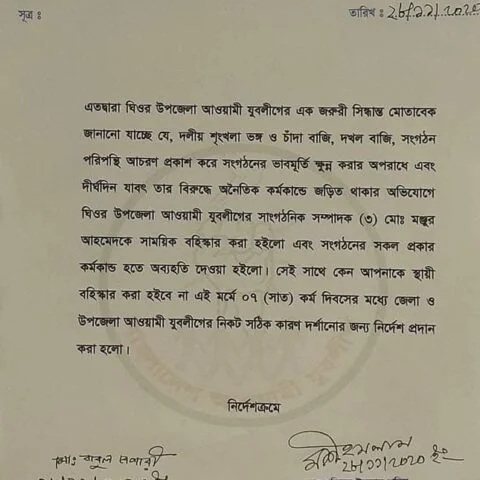 সূত্র ঃ
তারিখ ঃ ২৮/১১/২০২০
এতদ্বারা ঘিওর উপজেলা আওয়ামী যুবলীগের এক জরুরী সিদ্ধান্ত মোতাবেক
জানানো যাচ্ছে যে, দলীয় শৃংখলা ভঙ্গ ও চাঁদা বাজি, দখল বাজি, সংগঠন
পরিপন্থি আচরণ প্রকাশ করে সংগঠনের ভাবমূর্তি ক্ষুন্ন করার অপরাধে এবং
দীর্ঘদিন যাবৎ তার বিরুদ্ধে অনৈতিক কর্মকান্ডে জড়িত থাকার অভিযোগে
ঘিওর উপজেলা আওয়ামী যুবলীগের সাংগঠনিক সম্পাদক (৩) মোঃ মঞ্জুর
আহমেদকে সাময়িক বহিস্কার করা হইলো এবং সংগঠনের সকল প্রকার
কর্মকান্ড হতে অব্যহতি দেওয়া হইলো। সেই সাথে কেন আপনাকে স্থায়ী
বহিস্কার করা হইবে না এই মর্মে ০৭ (সাত) কর্ম দিবসের মধ্যে জেলা ও
উপজেলা আওয়ামী যুবলীগের নিকট সঠিক কারণ দর্শানোর জন্য নির্দেশ প্রদান
করা হলো।
নির্দেশক্রমে
মোঃ বাবুল
ইসলাম
২৮/১১/২০২০ ইং